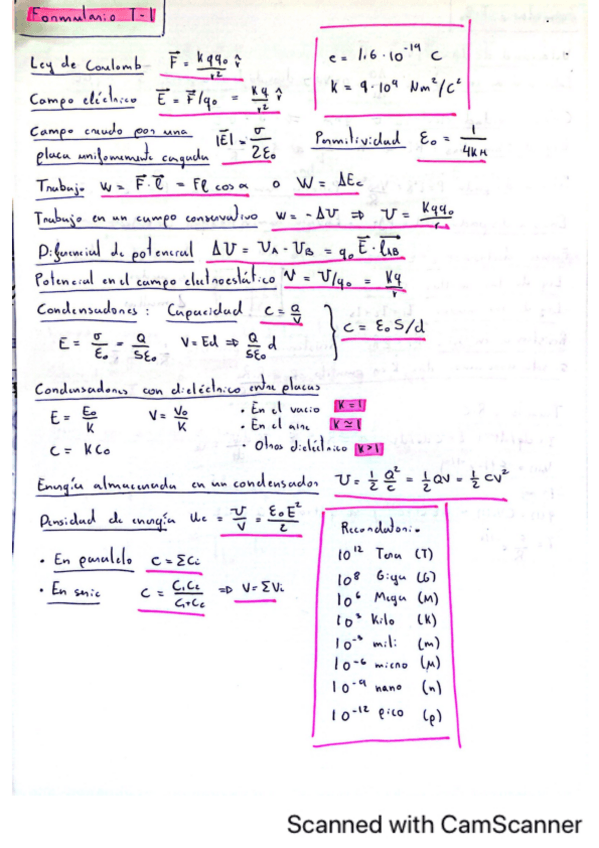 Formulario T-1
Ley de Coulomb F⃗ = kqq₀/r² r̂
e = 1.6 · 10⁻¹⁹ C
k = 9 · 10⁹ Nm²/C²
Campo eléctrico E⃗ = F⃗/q₀ = kq/r² r̂
Campo creado por una placa uniformemente cargada |E⃗| = σ/2ε₀
Permitividad ε₀ = 1/4kπ
Trabajo W = F⃗ · l⃗ = Fl cos α o W = ΔEc
Trabajo en un campo conservativo W = -ΔU ⇒ U = kqq₀/r
Diferencial de potencial ΔU = U_A - U_B = q₀ E⃗ · l⃗_AB
Potencial en el campo electroestático V = U/q₀ = kq/r
Condensadores : Capacidad C = Q/V
E = σ/ε₀ = Q/Sε₀ V = Ed ⇒ Q/Sε₀ d } C = ε₀ S/d
Condensadores con dieléctrico entre placas
E = E₀/K V = V₀/K
· En el vacio K = 1
· En el aire K ≃ 1
C = KC₀
· Otros dieléctrico K > 1
Energía almacenada en un condensador U = 1/2 Q²/C = 1/2 QV = 1/2 CV²
Densidad de energía u_e = U/V = ε₀E²/2
· En paralelo C = ΣCi
· En serie C = C₁C₂/C₁+C₂ ⇒ V = ΣVi
Recordatorio:
10¹² Tera (T)
10⁸ Giga (G)
10⁶ Mega (M)
10³ Kilo (K)
10⁻³ mili (m)
10⁻⁶ micro (μ)
10⁻⁹ nano (n)
10⁻¹² pico (p)
Scanned with CamScanner